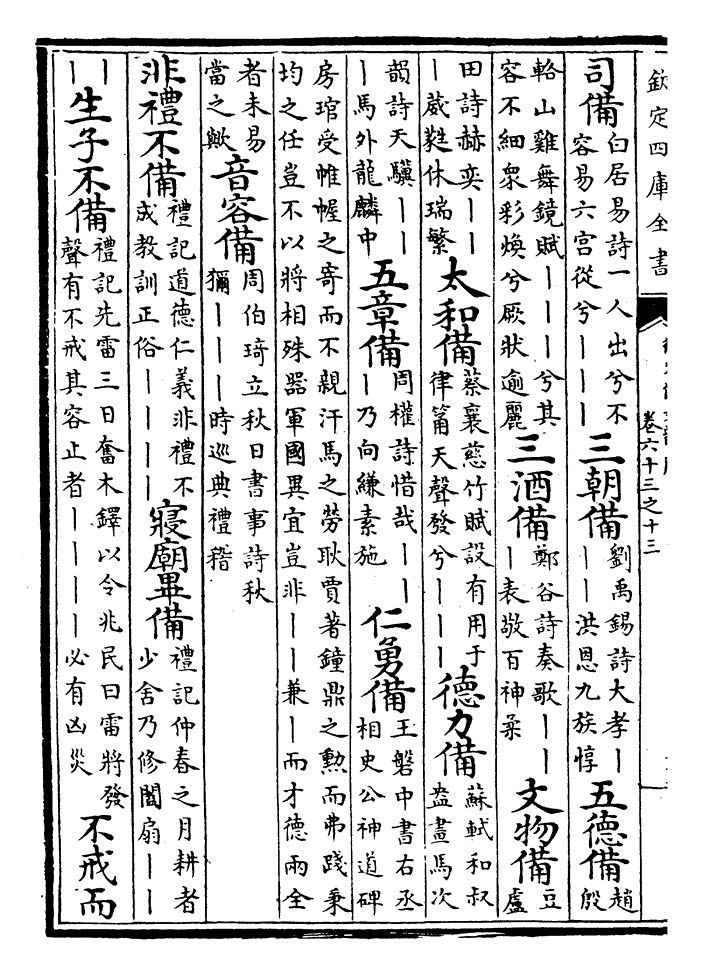 欽定四庫全書
卷六十三之十三
司備 白居易詩一人出兮不容易六宮從兮｜｜｜ 三朝備 劉禹錫詩大孝｜｜洪恩九族惇 五德備 趙殷
輅山雞舞鏡賦｜｜｜兮其容不細衆彩煥兮厥狀逾麗 三酒備 鄭谷詩奏歌｜｜｜表敬百神柔 文物備 豆盧
田詩赫奕｜｜｜葳蕤休瑞繁 太和備 蔡襄慈竹賦設有用于律筩天聲發兮｜｜｜ 德力備 蘇軾和叔盎畫馬次
韻詩天驥｜｜｜馬外龍麟中 五章備 周權詩惜哉｜｜｜乃向縑素施 仁勇備 王磐中書右丞相史公神道碑
房琯受帷幄之寄而不親汗馬之勞耿賈著鐘鼎之勲而弗踐秉均之任豈不以將相殊器軍國異宜豈非｜｜兼｜而才德兩全
者未易當之歟 音容備 周伯琦立秋日書事詩秋獮｜｜｜時巡典禮稽
非禮不備 禮記道德仁義非禮不成教訓正俗｜｜｜｜ 寢廟畢備 禮記仲春之月耕者少舍乃修闔扇｜｜
｜｜ 生子不備 禮記先雷三日奮木鐸以令兆民曰雷將發聲有不戒其容止者｜｜｜｜必有凶災 不戒而